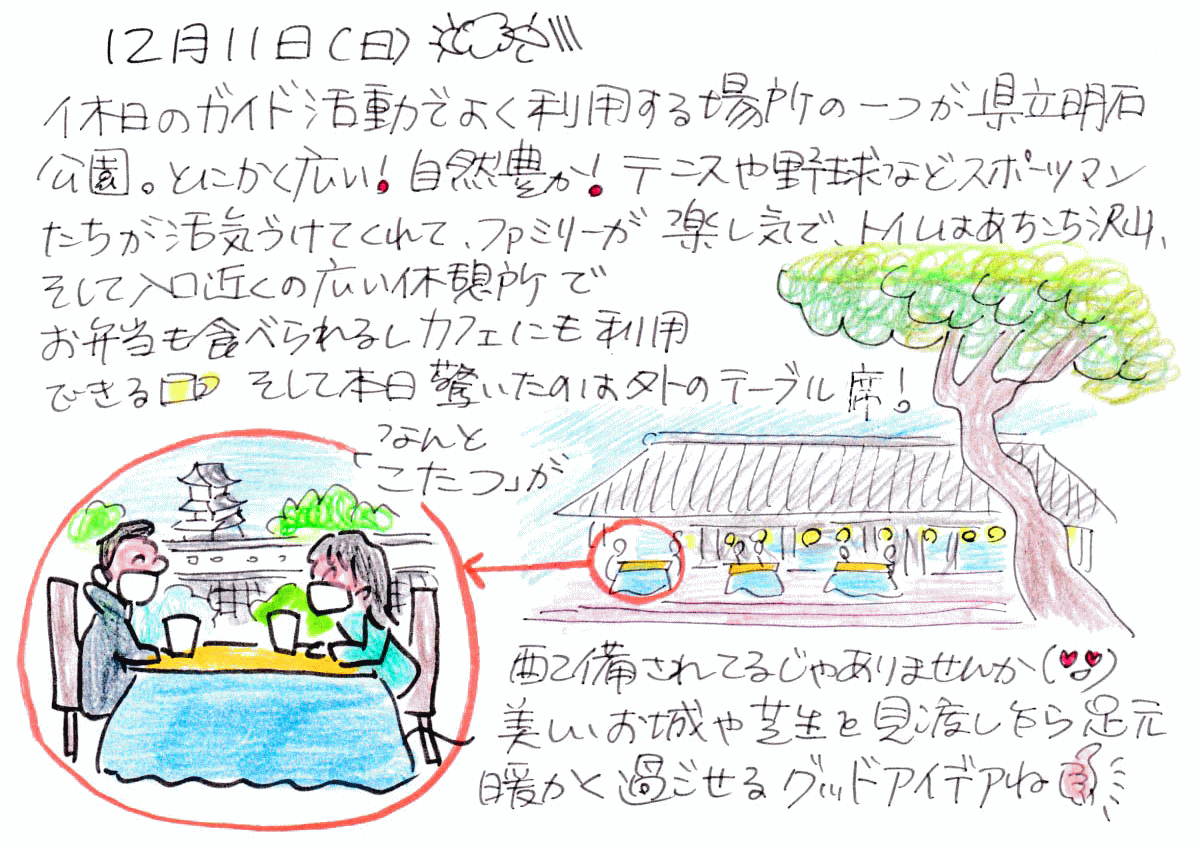 12月11日(日)
休日のガイド活動でよく利用する場所の一つが県立明石
公園。とにかく広い!自然豊か!テニスや野球などスポーツマン
たちが活気づけてくれて、ファミリーが楽し気で、トイレはあちこち沢山、
そして入口近くの広い休憩所で
お弁当も食べられるしカフェにも利用
できる そして本日驚いたのは外のテーブル席!
なんと
「こたつ」が
配備されてるじゃありませんか
美しいお城や芝生を見渡しながら足元
暖かく過ごせるグッドアイデアね